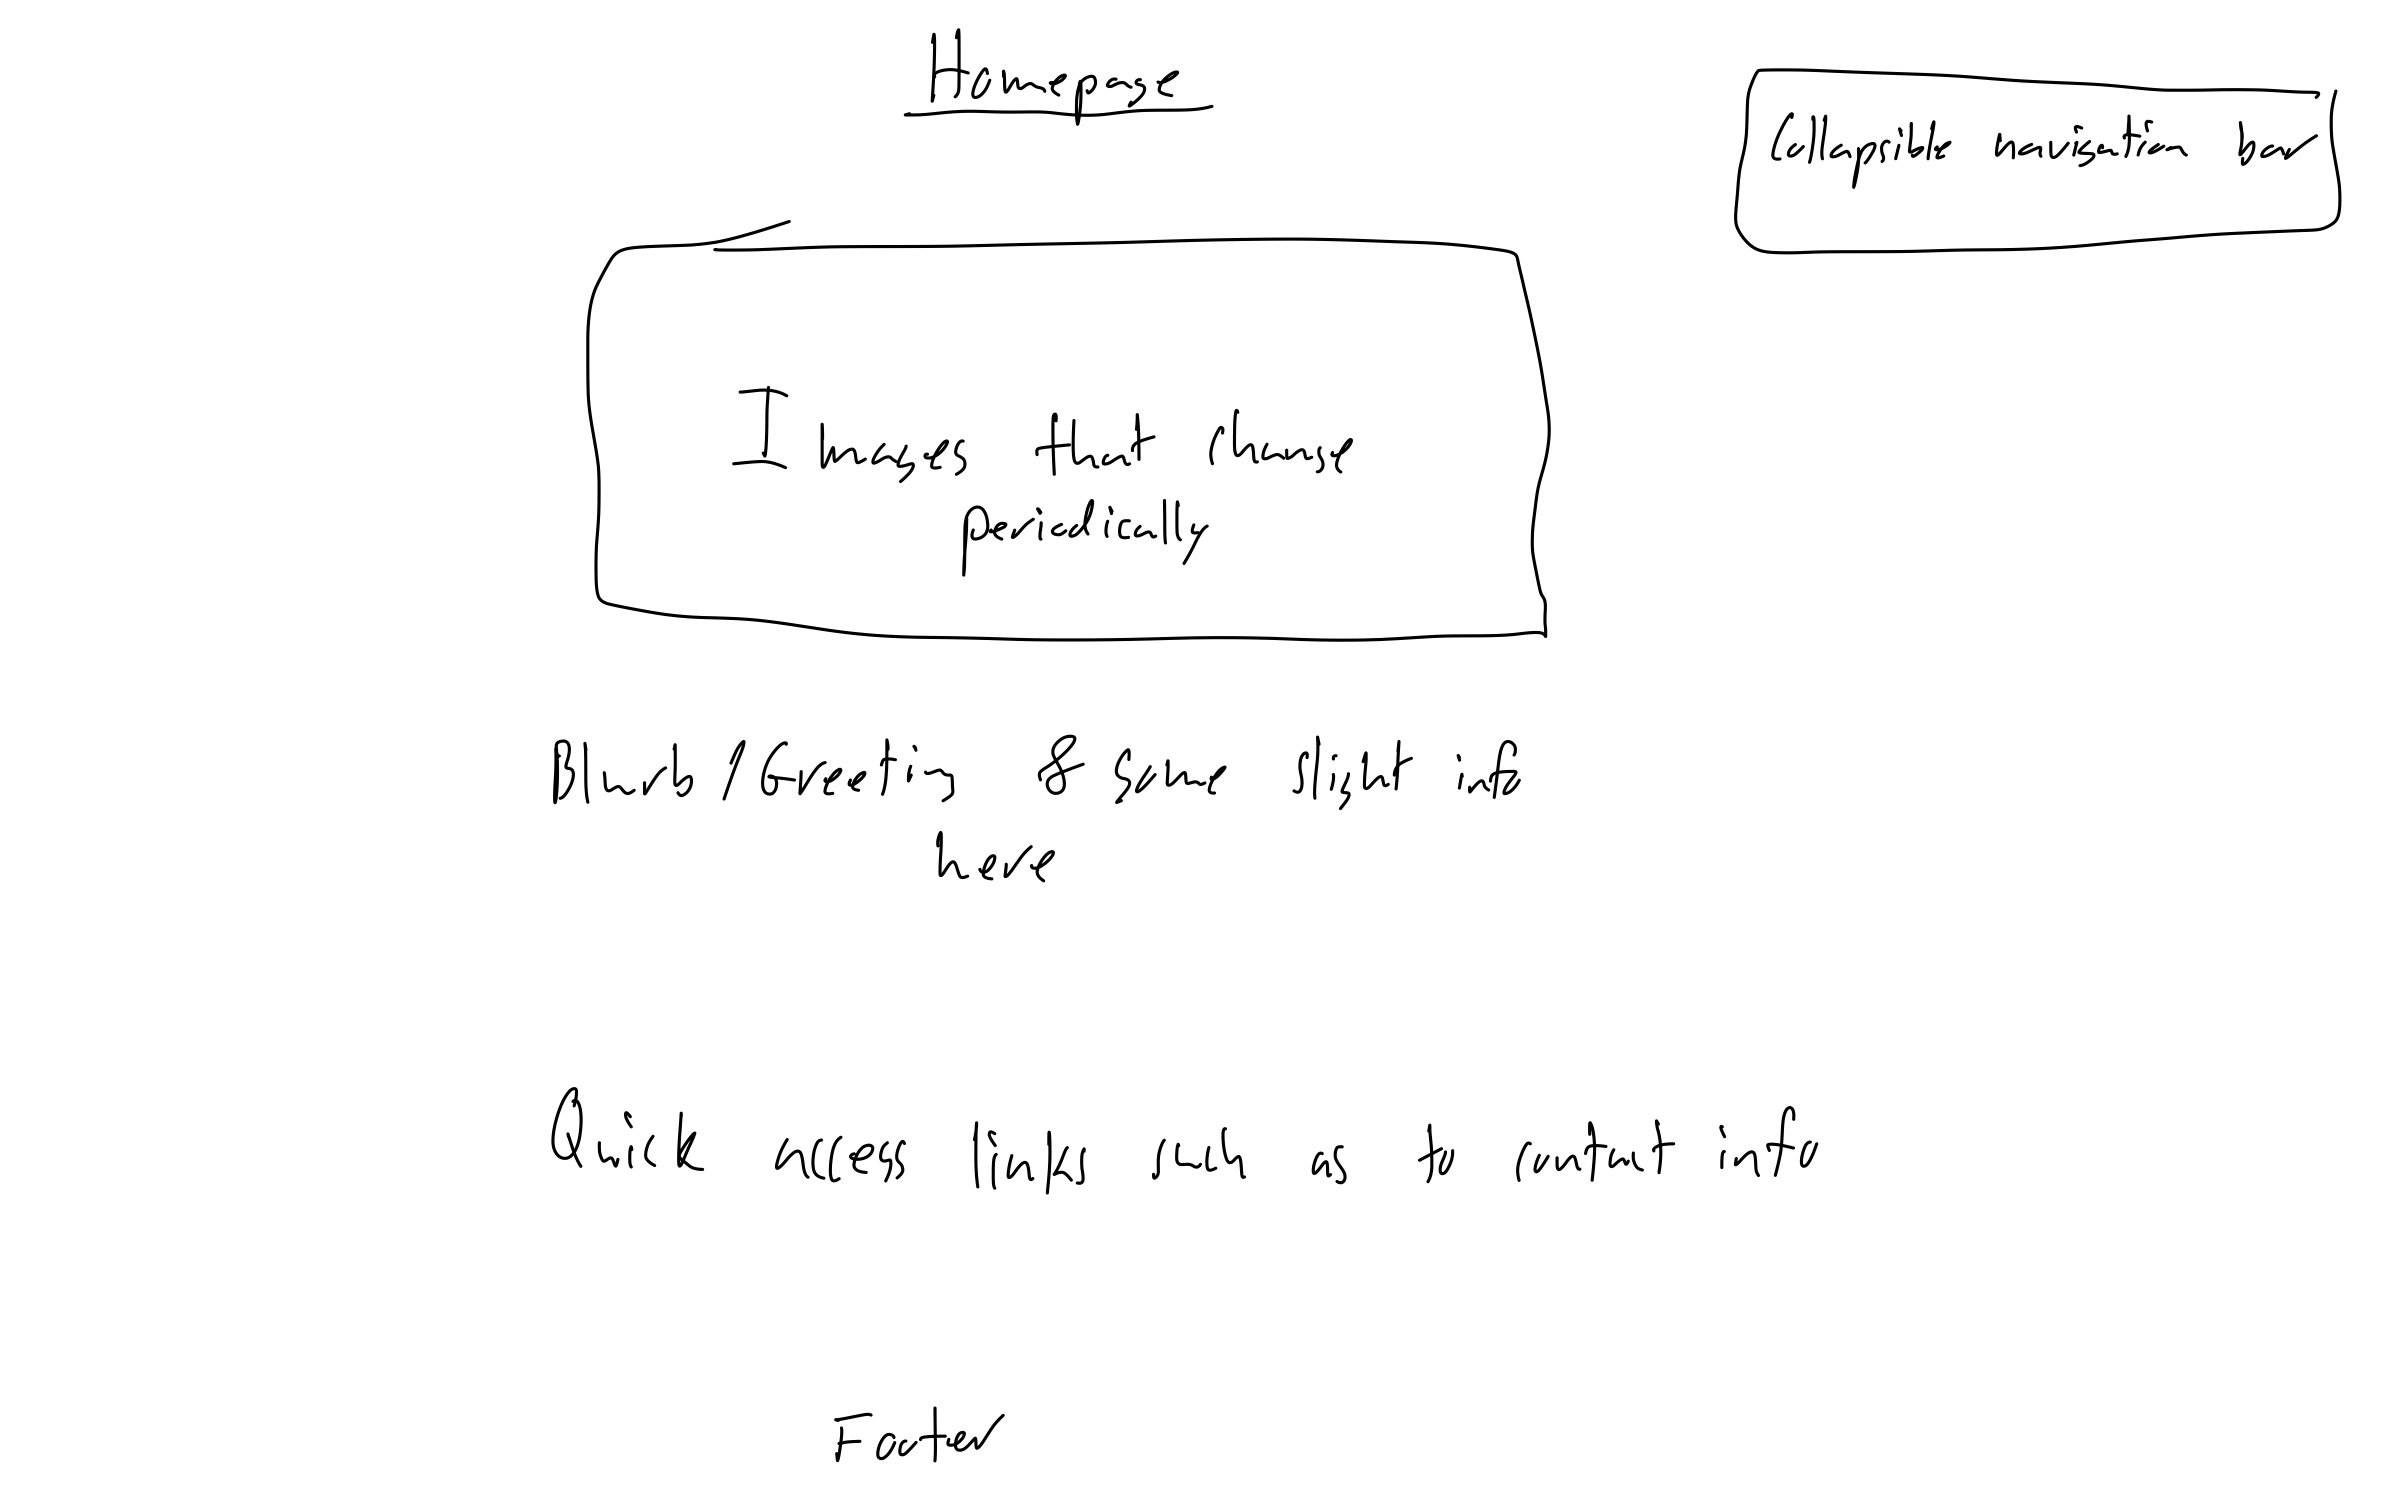 Homepage
Collapsible navigation bar
Images that change
periodically
Blurb / Greeting & some slight info
here
Quick access links such as to contact info
Footer